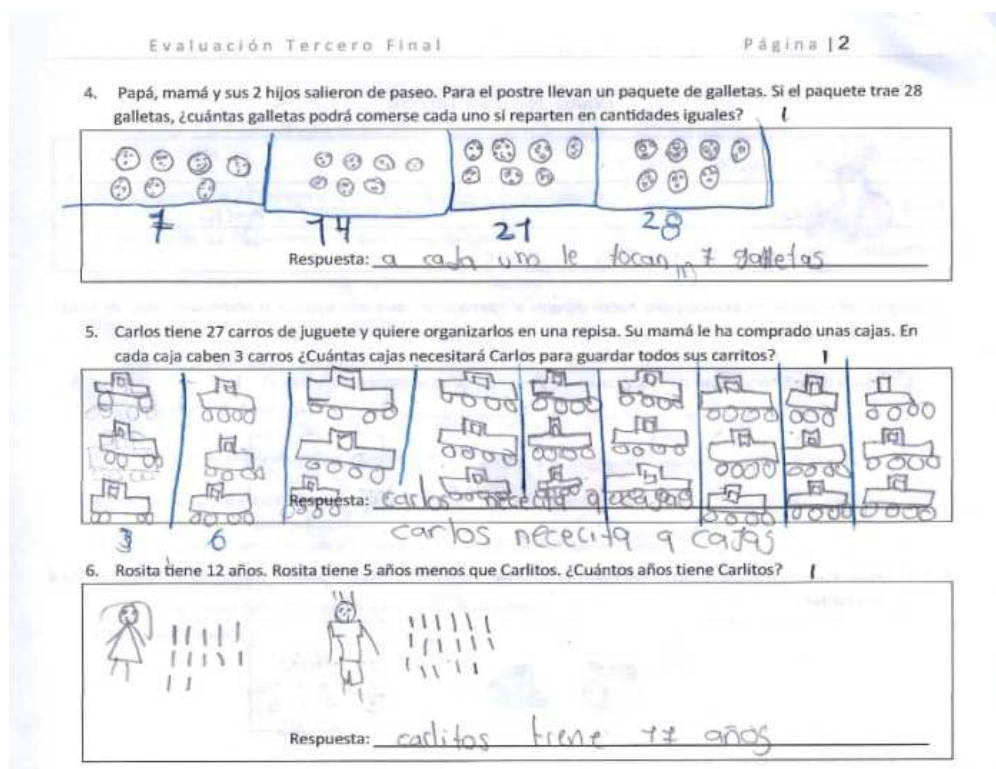 Evaluación Tercero Final
Página | 2
4. Papá, mamá y sus 2 hijos salieron de paseo. Para el postre llevan un paquete de galletas. Si el paquete trae 28
galletas, ¿cuántas galletas podrá comerse cada uno si reparten en cantidades iguales? 1
7 14 21 28
Respuesta: a cada uno le tocan 7 galletas
5. Carlos tiene 27 carros de juguete y quiere organizarlos en una repisa. Su mamá le ha comprado unas cajas. En
cada caja caben 3 carros ¿Cuántas cajas necesitará Carlos para guardar todos sus carritos? 1
Respuesta: carlos nececita 9
carlos nececita 9 cajas
3 6
6. Rosita tiene 12 años. Rosita tiene 5 años menos que Carlitos. ¿Cuántos años tiene Carlitos? 1
Respuesta: carlitos tiene 17 años